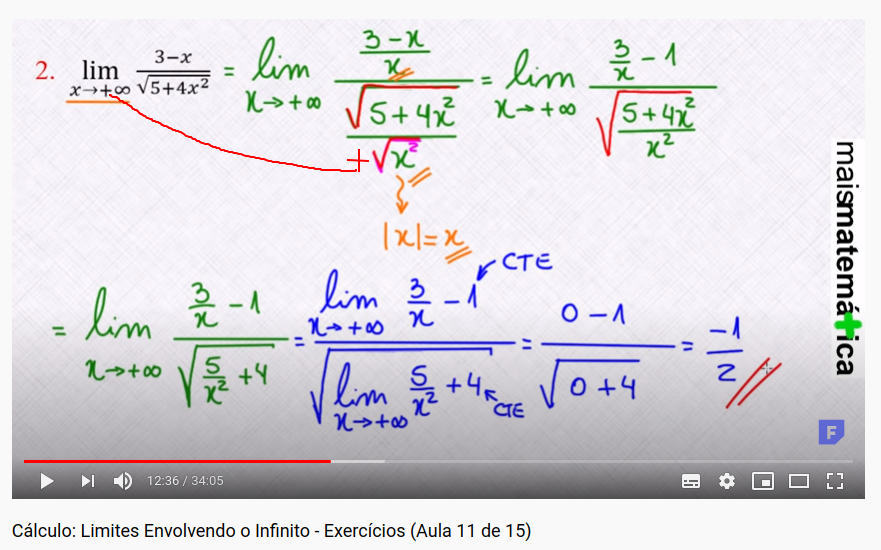 2. lim x→+∞ 3−x / √5+4x² = lim x→+∞ 3−x / x / √5+4x² / +√x² = lim x→+∞ 3/x − 1 / √5+4x² / x²
|x|=x
CTE
= lim x→+∞ 3/x − 1 / √5/x² + 4 = lim x→+∞ 3/x − 1 / √lim x→+∞ 5/x² + 4 = 0 − 1 / √0 + 4 = −1 / 2
CTE
maismatemática
F
12:36 / 34:05
Cálculo: Limites Envolvendo o Infinito - Exercícios (Aula 11 de 15)